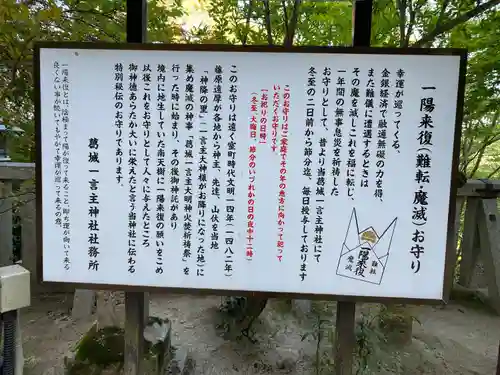 一陽来復(難転・魔滅)お守り
幸運が巡ってくる、
金銀経済で融通無碍の力を得、
また難儀に遭遇するときは
その魔を滅しこれを福に転じ、
一年間の無事息災を祈祷した
お守りとして、昔より当葛城一言主神社にて
冬至の二日前から節分迄、毎夜授与しております
一陽来復
魔滅
このお守りはご家庭でその年の恵方に向かって祀って
いただくお守りです。
【お祀りの日時】
(冬至、大晦日、節分のいづれかの日の夜中十二時)
このお守りは遠く室町時代文明一四年(一四八二年)
藤原遠厚が各地から神主、先達、山伏を当地
「神降の里」(一言主大神様がお降りになった地)に
集め魔滅の神事「葛城一言主大明神火焚祈祷祭」を
行った時に始まり、その後御神託があり
境内に地生していた南天樹に一陽来復の願いをこめ
以後これをお守りとして人々に与えたところ
御神徳あらたか大いに栄えたと言う当神社に伝わる
特別秘伝のお守りであります。
葛城一言主神社社務所
一陽来復とは、陰極まって陽が復って来ること。即ち運が向いて来る
良くない事が続いてもやがて幸運が巡って来るの意。